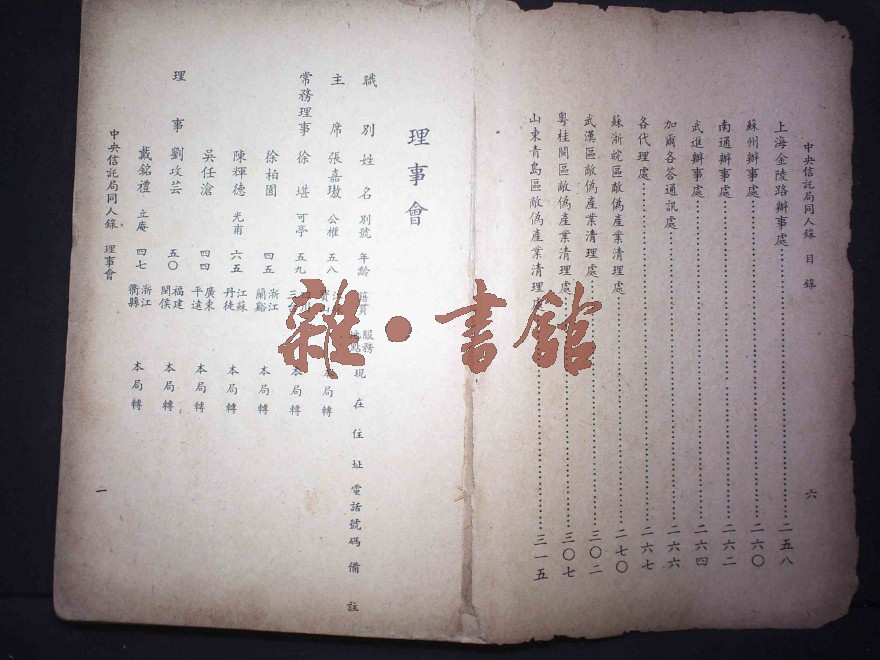 中央信託局同人錄 目錄
六
上海金陵路辦事處……二五八
蘇州辦事處……二六〇
南通辦事處……二六二
武進辦事處……二六四
加爾各答通訊處……二六六
各代理處……二六七
蘇浙皖區敵偽產業清理處……二七〇
武漢區敵偽產業清理處……三〇二
粵桂閩區敵偽產業清理處……三〇七
山東青島區敵偽產業清理處……三一五
理事會
職別 姓名 別號 年齡 籍貫 服務 現在住址 電話號碼 備註
主席 張嘉璈 公權 五八 本局轉
常務理事 徐堪 可亭 五九 三台 本局轉
徐柏園 四五 浙江蘭谿 本局轉
陳輝德 光甫 六五 江蘇丹徒 本局轉
吳任滄 四四 廣東平遠 本局轉
理事 劉攻芸 五〇 福建閩侯 本局轉
戴銘禮 立庵 四七 浙江衢縣 本局轉
中央信託局同人錄 理事會
一
雜·書館